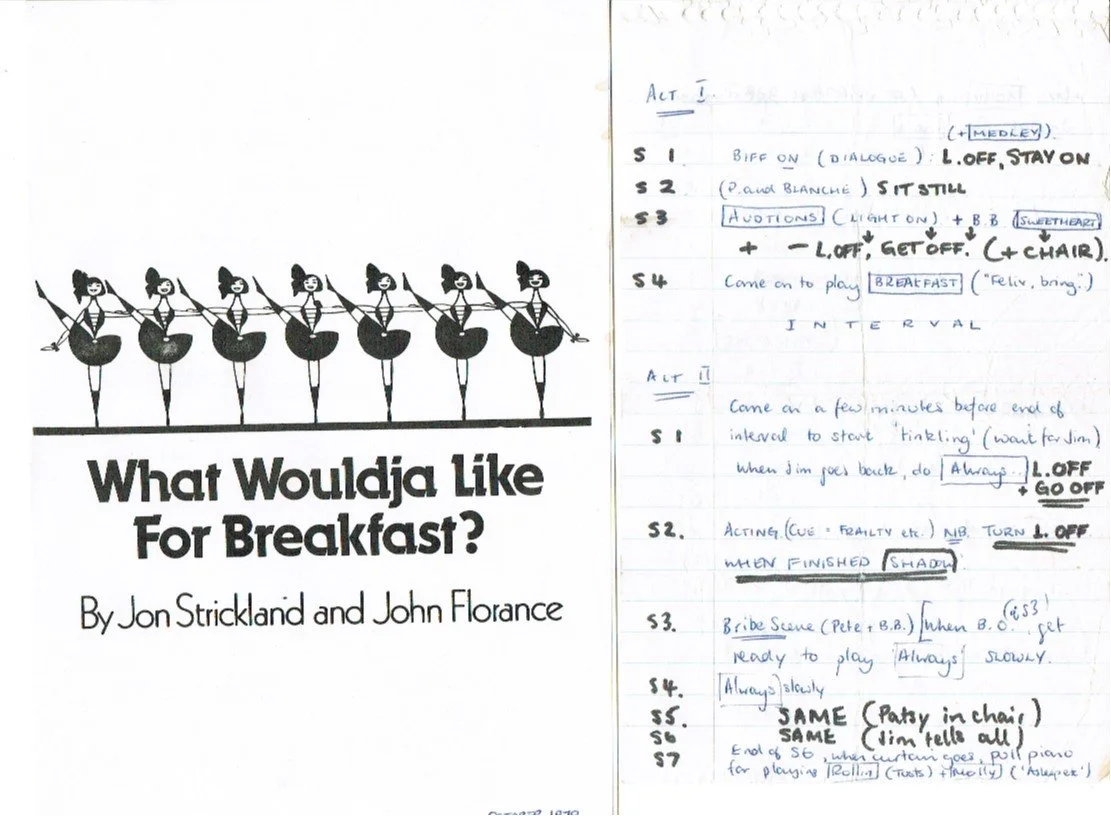 What Wouldja Like
For Breakfast?
By Jon Strickland and John Florance
OCTOBER 1979
ACT I.
(+ MEDLEY).
S 1 BIFF ON (DIALOGUE): L.OFF, STAY ON
S 2 (P. and BLANCHE) SIT STILL
S 3 AUDTIONS (LIGHT ON) + B.B (SWEETHEART)
+ - L.OFF, GET OFF. (+ CHAIR).
S 4 Come on to play BREAKFAST ("Felix, bring.")
INTERVAL
ACT II
Come on a few minutes before end of
S 1 interval to start 'tinkling' (wait for Jim)
When Jim goes back, do Always.. L.OFF
+ GO OFF
S2. ACTING (CUE = FRAILTY etc.) NB. TURN L. OFF
WHEN FINISHED SHADOW
S3. Bribe Scene (Pete + B.B.) [When B.O. (of S3) get
ready to play Always SLOWLY.
S4. Always slowly
S5. SAME (Patsy in chair)
S6 SAME (Jim tells all)
S7 End of S6, when curtain goes, pull piano
for playing Rollin (Tuots) + Molly